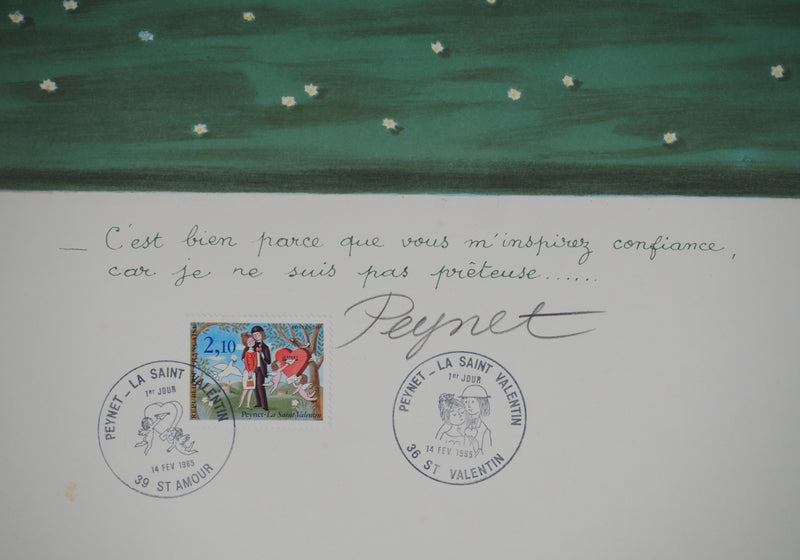 — C'est bien parce que vous m'inspirez confiance,
car je ne suis pas prêteuse......
Peynet
2,10
RÉPUBLIQUE FRANÇAISE
Peynet-La Saint Valentin
PEYNET - LA SAINT VALENTIN
1er JOUR
14 FEV 1985
39 ST AMOUR
PEYNET - LA SAINT VALENTIN
1er JOUR
14 FEV 1985
36 ST VALENTIN